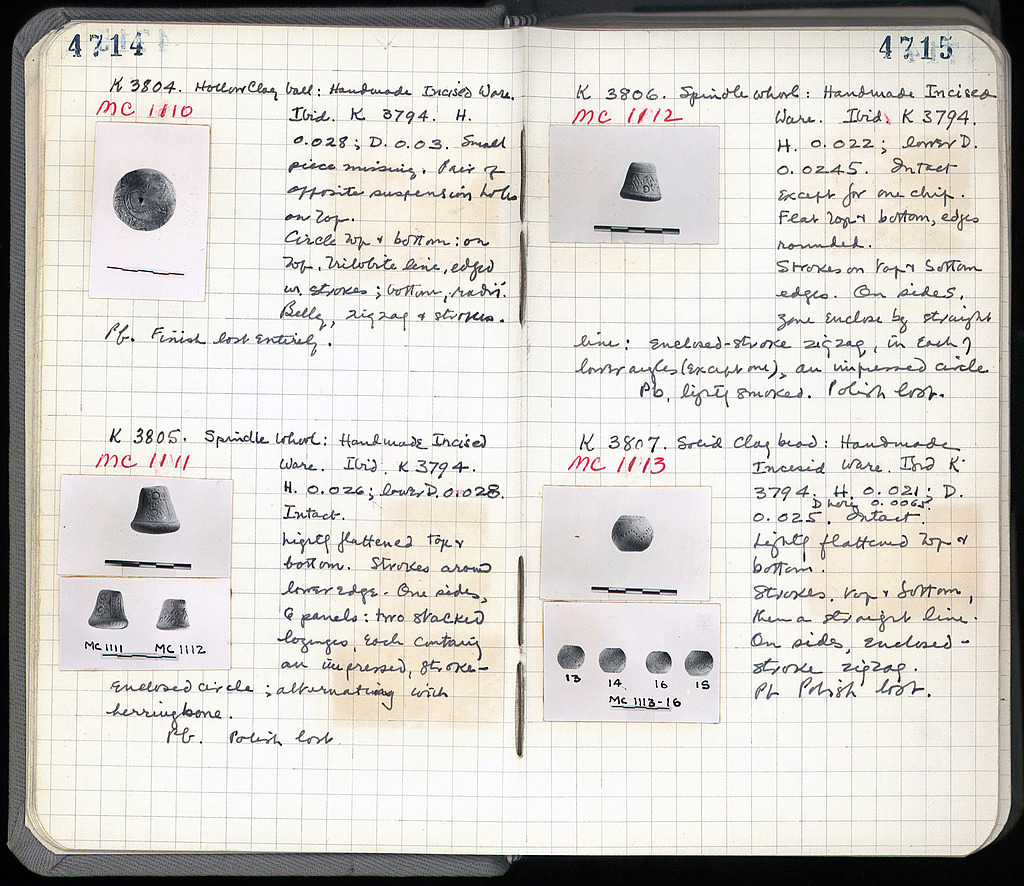 4714
K 3804. Hollow Clay ball: Handmade Incised Ware.
MC 1110
Ibid. K 3794. H.
0.028; D. 0.03. Small
piece missing. Pair of
opposite suspension holes
on top.
Circle top & bottom: on
top, trilobite line, edged
w. strokes; bottom, radii.
Belly, zigzag & strokes.
Pb. Finish lost entirely.
K 3805. Spindle whorl: Handmade Incised
MC 1111
Ware. Ibid. K 3794.
H. 0.026; lower D. 0.028.
Intact.
Lightly flattened top &
bottom. Strokes around
lower edge. One sides,
6 panels: two stacked
lozenges, each containing
an impressed, stroke-
enclosed circle; alternating with
herringbone.
Pb. Polish lost
MC 1111 MC 1112
4715
K 3806. Spindle whorl: Handmade Incised
MC 1112
Ware. Ibid. K 3794.
H. 0.022; lower D.
0.0245. Intact
except for one chip.
Flat top & bottom, edges
rounded.
Strokes on top & bottom
edges. On sides,
zone enclose by straight
line: enclosed-stroke zigzag, in each of
lower angles (except one), an impressed circle
Pb, lightly smoked. Polish lost.
K 3807. Solid Clay bead: Handmade
MC 1113
Incised Ware. Ibid K
3794. H. 0.021; D.
D hole 0.0065.
0.025. Intact.
Lightly flattened top &
bottom.
Strokes, top & bottom,
then a straight line.
On sides, enclosed-
stroke zigzag.
Pb Polish lost.
13 14 16 15
MC 1113-16